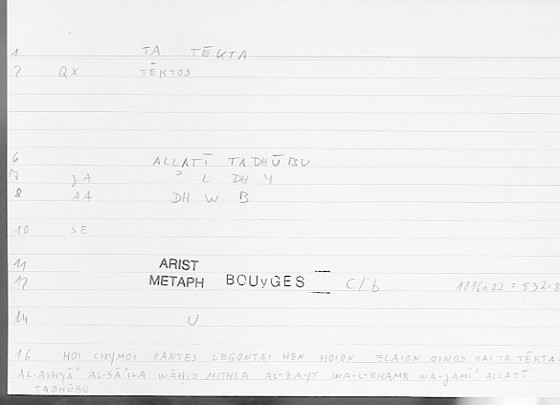 1 TA TĒKTA
2 QX TĒKTOS
6 ALLATĪ TADHŪBU
7 JA ʾ L DH Y
8 AA DH W B
10 SE
11 ARIST
12 METAPH BOUYGES C/b 1016a22 = 532.8
14 U
16 HOI CHYMOI PANTES LEGONTAI HEN HOION ELAION OINOS KAI TA TĒKTA
AL-ASHYĀʾ AL-SĀʾILA WĀḤID MITHLA AL-ZAYT WA-L-KHAMR WA-JAMĪʿ ALLATĪ
TADHŪBU